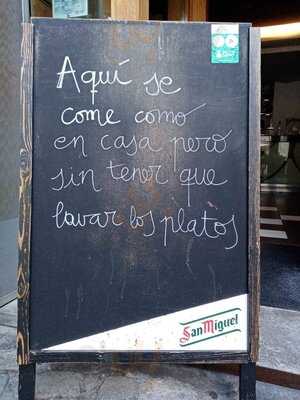 Aquí se
come comó
en casa pero
sin tener que
lavar los platos
San Miguel